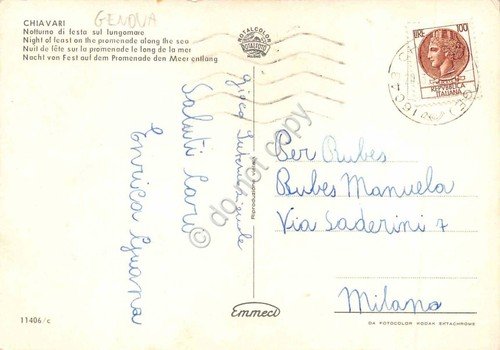 GENOVA
CHIAVARI
Notturno di festa sul lungomare
Night of feast on the promenade along the sea
Nuit de fête sur la promenade le long de la mer
Nacht von Fest auf dem Promenade den Meer entlang
ROTALCOLOR
ROTALFOTO
MILANO
LIRE 100
REPVBBLICA
ITALIANA
Saluti Cari
Enrica
Riproduzione
do not copy
Per Rubes
Rubes Manuela
Via Saderini 7
Milano
11406/c
Emmeci
DA FOTOCOLOR KODAK EKTACHROME